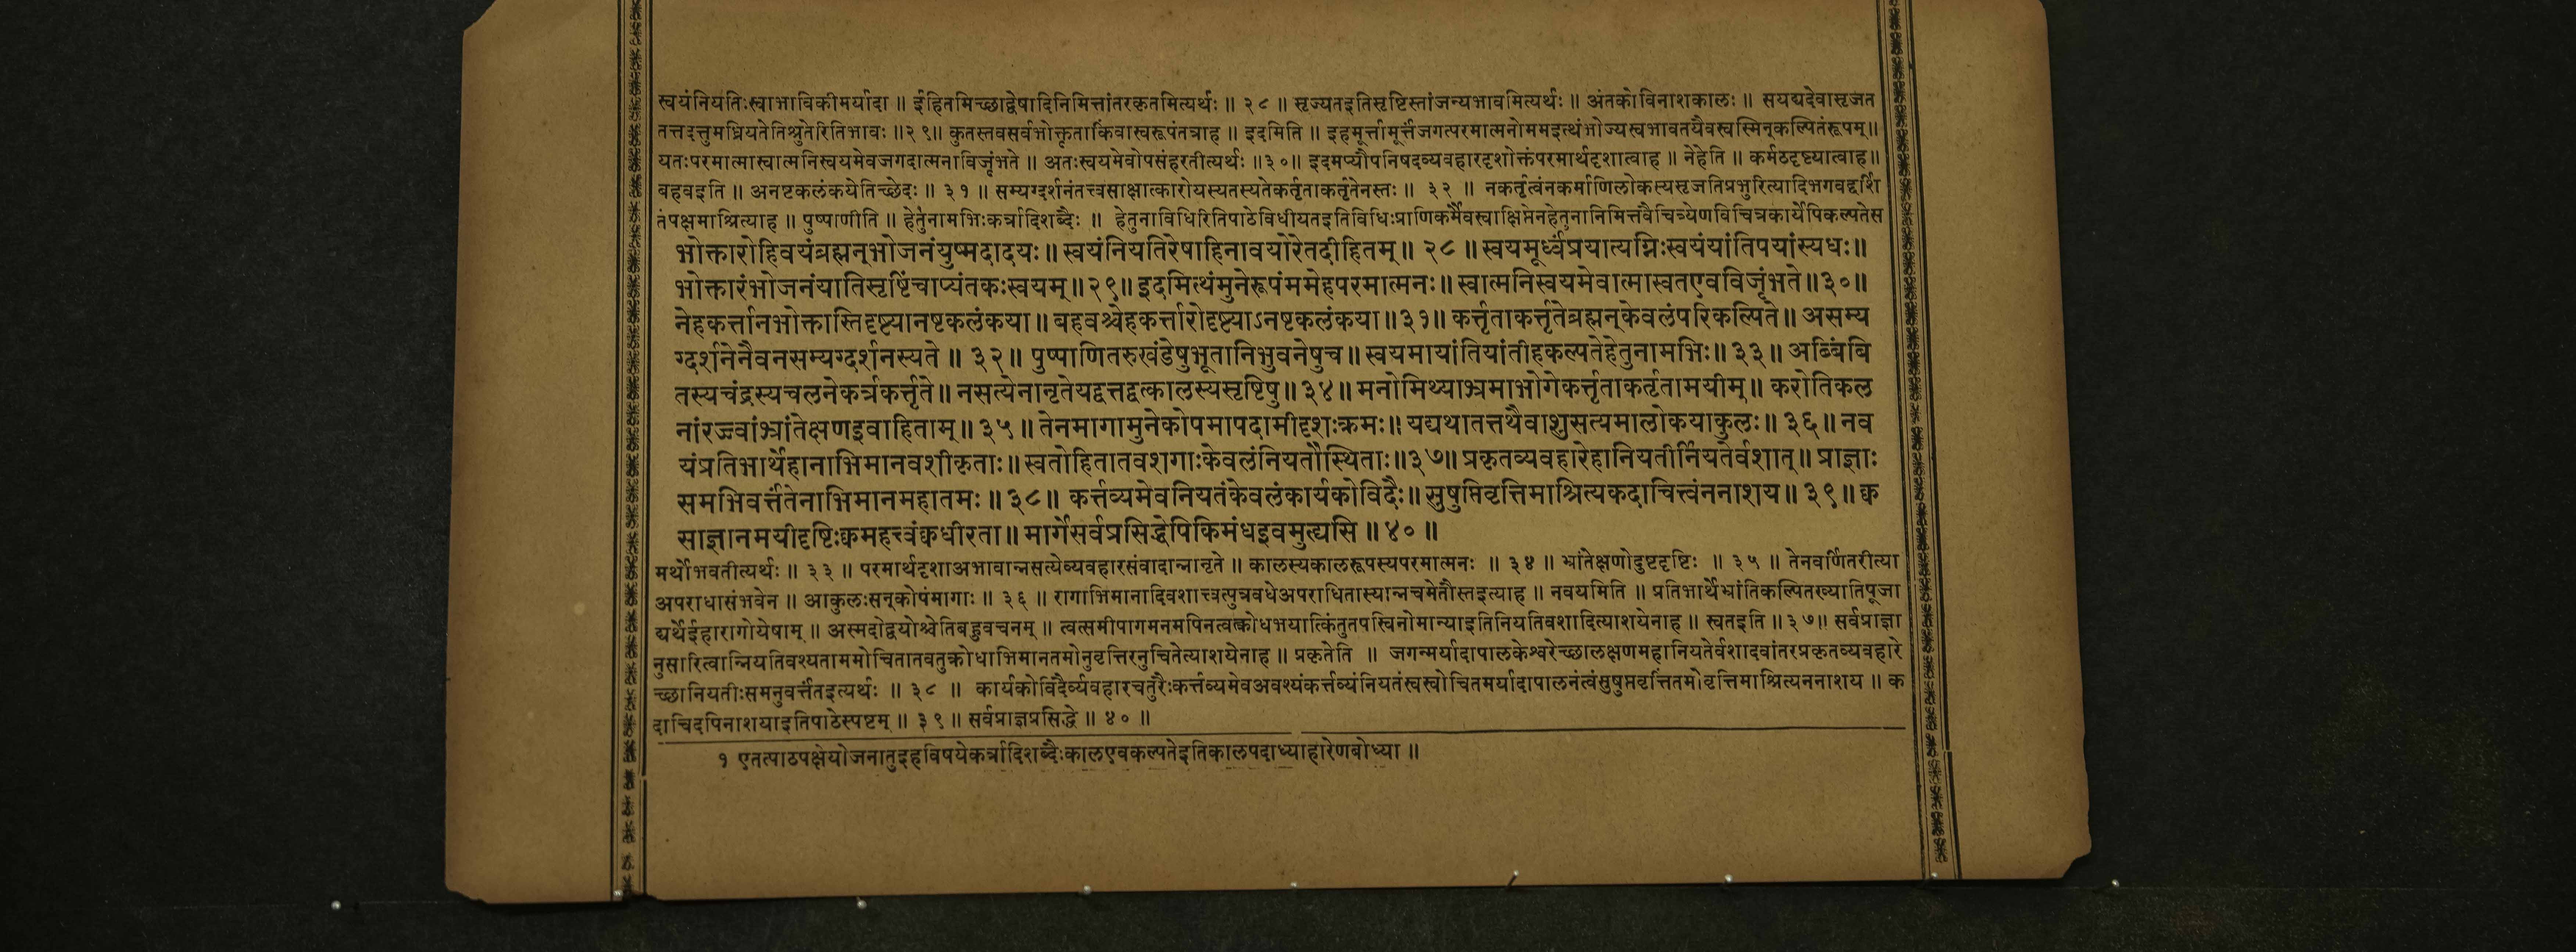 स्वयंनियतिःस्वाभाविकीमर्यादा ॥ ईहितमिच्छाद्वेषादिनिमित्तांतरकृतमित्यर्थः ॥ २८ ॥ सृज्यतइतिसृष्टिस्तांजन्यभावमित्यर्थः ॥ अंतकोविनाशकालः ॥ सयद्यदेवासृजत
तत्तदत्तुमध्रियतेतिश्रुतेरितिभावः ॥२९॥ कुतस्तवसर्वभोक्तृताकिंवास्वरूपंतत्राह ॥ इदमिति ॥ इहमूर्त्तामूर्त्तजगत्परमात्मनोममइत्थंभोज्यस्वभावतयैवस्वस्मिन्कल्पितंरूपम्॥
यतःपरमात्मास्वात्मनिस्वयमेवजगदात्मनाविजृंभते ॥ अतःस्वयमेवोपसंहरतीत्यर्थः ॥३०॥ इदमप्यौपनिषदव्यवहारदृशोक्तंपरमार्थदृशात्वाह ॥ नेहेति ॥ कर्मठदृष्ट्यात्वाह॥
बहवइति ॥ अनष्टकलंकयेतिच्छेदः ॥ ३१ ॥ सम्यग्दर्शनंतत्त्वसाक्षात्कारोयस्यतस्यतेकर्तृताकर्तृतेनस्तः ॥ ३२ ॥ नकर्तृत्वंनकर्माणिलोकस्यसृजतिप्रभुरित्यादिभगवद्दर्शि
तंपक्षमाश्रित्याह ॥ पुष्पाणीति ॥ हेतुंनामभिःकर्त्रादिशब्दैः ॥ हेतुनाविधिरितिपाठेविधीयतइतिविधिःप्राणिकर्मैवस्वाक्षिप्तेनहेतुनानिमित्तवैचित्र्येणविचित्रकार्येपिकल्पतेस
भोक्तारोहिवयंब्रह्मन्भोजनंयुष्मदादयः॥ स्वयंनियतिरेषाहिनावयोरेतदीहितम्॥ २८ ॥ स्वयमूर्ध्वंप्रयात्यग्निःस्वयंयांतिपयांस्यधः॥
भोक्तारंभोजनंयातिसृष्टिंचाप्यंतकःस्वयम्॥२९॥ इदमित्थंमुनेरूपंममेहपरमात्मनः॥ स्वात्मनिस्वयमेवात्मास्वतएवविजृंभते॥३०॥
नेहकर्त्तानभोक्तास्तिदृष्ट्यानष्टकलंकया॥ बहवश्चेहकर्त्तारोदृष्ट्याऽनष्टकलंकया॥३१॥ कर्त्तृताकर्त्तृतेब्रह्मन्केवलंपरिकल्पिते॥ असम्य
ग्दर्शनेनैवनसम्यग्दर्शनस्यते ॥ ३२॥ पुष्पाणितरुखंडेषुभूतानिभुवनेषुच॥ स्वयमायांतियांतीहकल्पतेहेतुनामभिः॥ ३३॥ अब्बिंबि
तस्यचंद्रस्यचलनेकर्त्रकर्त्तृते॥ नसत्येनानृतेयद्वत्तद्वत्कालस्यसृष्टिषु॥ ३४॥ मनोमिथ्याभ्रमाभोगेकर्त्तृताकर्तृतामयीम्॥ करोतिकल
नांरज्ज्वांभ्रांतेक्षणइवाहिताम्॥ ३५॥ तेनमागामुनेकोपमापदामीदृशःक्रमः॥ यद्यथातत्तथैवाशुसत्यमालोकयाकुलः॥ ३६॥ नव
यंप्रतिभार्थेहानाभिमानवशीकृताः॥ स्वतोहितातवशगाःकेवलंनियतौस्थिताः॥३७॥ प्रकृतव्यवहारेहानियतीर्नियतेर्वशात्॥ प्राज्ञाः
समभिवर्त्ततेनाभिमानमहातमः॥ ३८॥ कर्त्तव्यमेवनियतंकेवलंकार्यकोविदैः॥ सुषुप्तिवृत्तिमाश्रित्यकदाचित्त्वंननाशय॥ ३९॥ क्व
साज्ञानमयीदृष्टिःक्वमहत्त्वंक्वधीरता॥ मार्गेसर्वप्रसिद्धेपिकिमंधइवमुह्यसि ॥ ४० ॥
मर्थोभवतीत्यर्थः ॥ ३३ ॥ परमार्थदृशाअभावान्नसत्येव्यवहारसंवादान्नानृते ॥ कालस्यकालरूपस्यपरमात्मनः ॥ ३४ ॥ भ्रांतेक्षणोदुष्टदृष्टिः ॥ ३५ ॥ तेनवर्णितरीत्या
अपराधासंभवेन ॥ आकुलःसन्कोपंमागाः ॥ ३६ ॥ रागाभिमानादिवशात्त्वत्पुत्रवधेअपराधितास्यान्नचमेतौस्तइत्याह ॥ नवयमिति ॥ प्रतिभार्थेभ्रांतिकल्पितख्यातिपूजा
द्यर्थेईहारागोयेषाम् ॥ अस्मदोद्वयोश्चेतिबहुवचनम् ॥ त्वत्समीपागमनमपिनत्वत्क्रोधभयात्किंतुतपस्विनोमान्याइतिनियतिवशादित्याशयेनाह ॥ स्वतइति ॥३७॥ सर्वप्राज्ञा
नुसारित्वान्नियतिवश्यताममोचितातवतुक्रोधाभिमानतमोनुवृत्तिरनुचितेत्याशयेनाह ॥ प्रकृतेति ॥ जगन्मर्यादापालकेश्वरेच्छालक्षणमहानियतेर्वशादवांतरप्रकृतव्यवहारे
च्छानियतीःसमनुवर्त्ततइत्यर्थः ॥ ३८ ॥ कार्यकोविदैर्व्यवहारचतुरैःकर्त्तव्यमेवअवश्यंकर्त्तव्यंनियतंस्वस्वोचितमर्यादापालनंत्वंसुषुप्तवृत्तिंतमोवृत्तिमाश्रित्यननाशय ॥ क
दाचिदपिनाशयाइतिपाठेस्पष्टम् ॥ ३९ ॥ सर्वप्राज्ञप्रसिद्धे ॥ ४० ॥
१ एतत्पाठपक्षेयोजनातुइहविषयेकर्त्रादिशब्दैःकालएवकल्पतेइतिकालपदाध्याहारेणबोध्या ॥